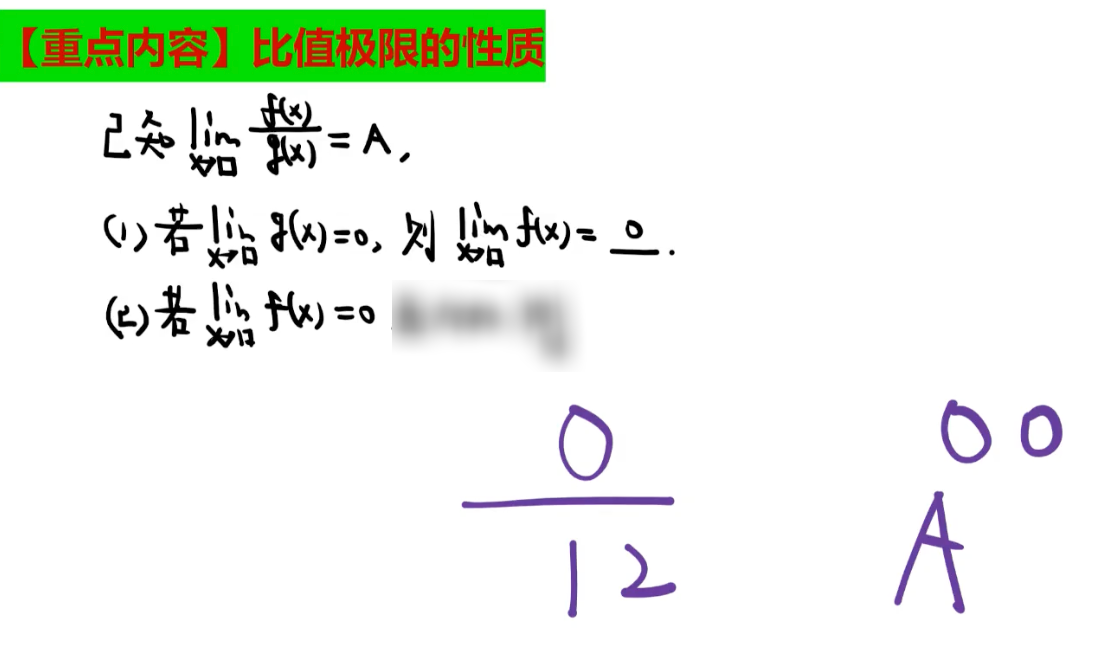 【重点内容】比值极限的性质
已知 lim x→□ f(x)/g(x) = A,
(1) 若 lim x→□ g(x)=0, 则 lim x→□ f(x)= 0 .
(2) 若 lim x→□ f(x)=0
0 0 0
1 2 A